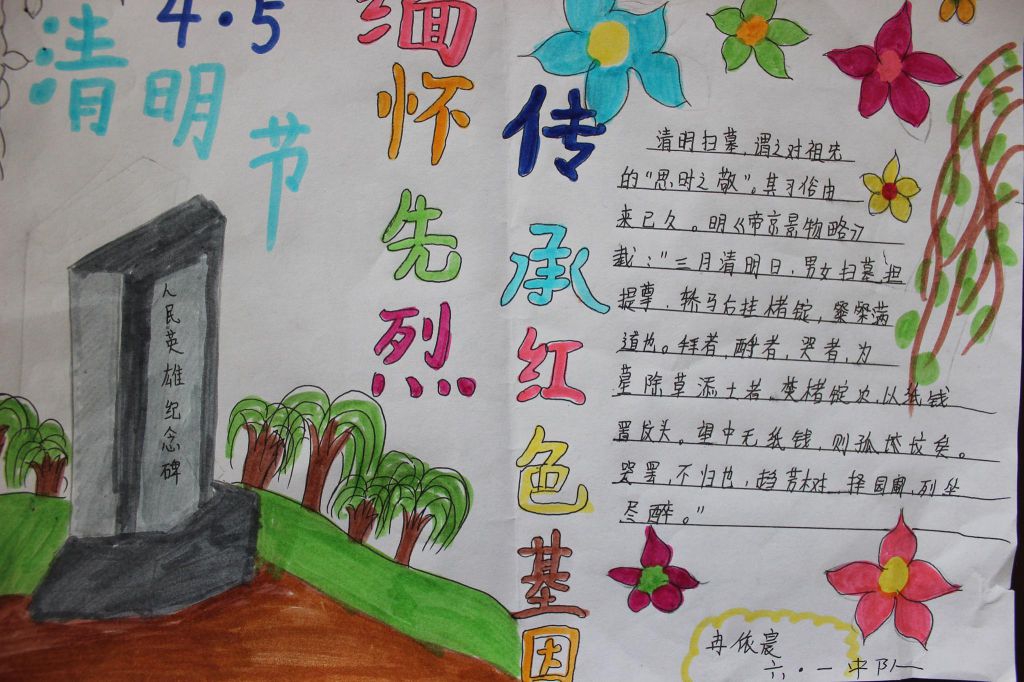 4·5
清明节
缅怀先烈
传承红色基因
人民英雄纪念碑
清明扫墓,谓之对祖先
的“思时之敬”。其习俗由
来已久。明《帝京景物略》
载:“三月清明日,男女扫墓,担
提尊,轿马后挂楮锭,粲粲满
道也。拜者,酹者,哭者,为
墓除草添土者,焚楮锭次,以纸钱
置坟头。望中无纸钱,则孤坟矣。
哭罢,不归也,趋芳树,择园圃,列坐
尽醉。”
冉依宸
六·一中队